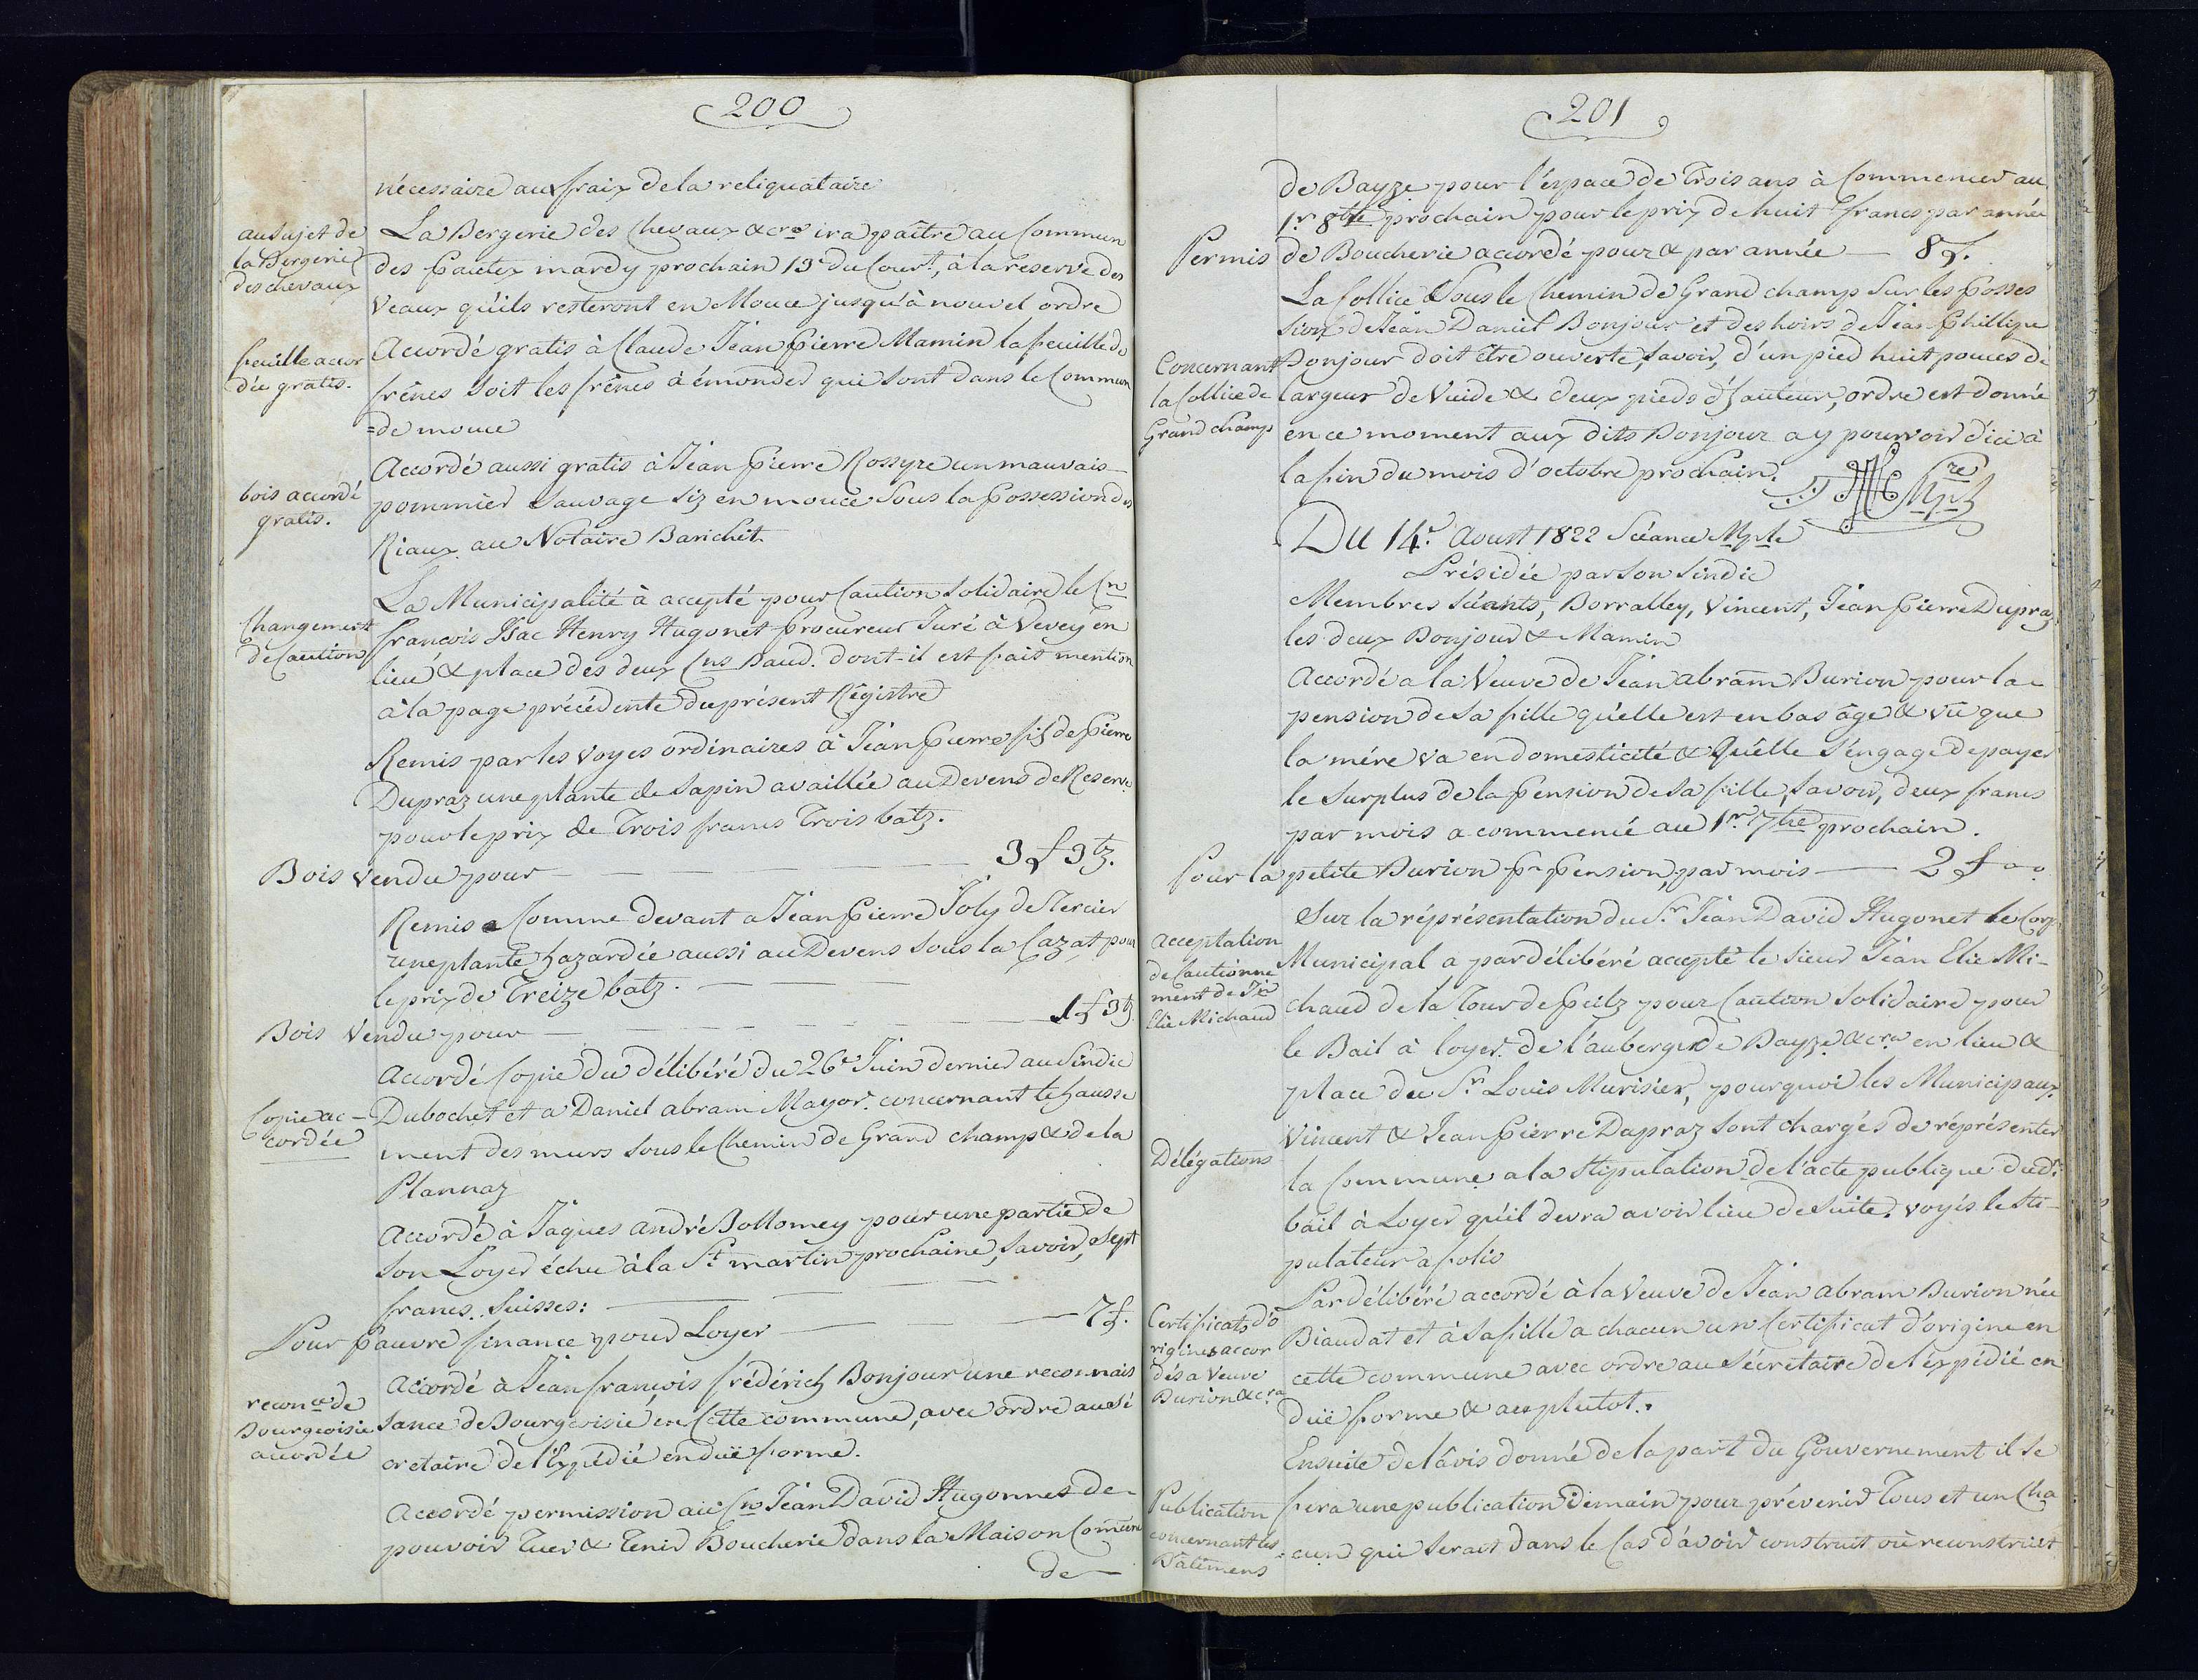 200
nécessaire aux fraix de la reliquataire
au Sujet de
la Bergerie
des chevaux
La Bergerie des Chevaux &cra ira paître au Commun
des Pautex mardy prochain 13e du Court, à la reserve des
Veaux qu'ils resteront en Mouce jusqu'à nouvel ordre
feuille accor
dée gratis.
Accordé gratis à Claude Jean Pierre Mamin la feuille de
frênes soit les frênes à émonder qui sont dans le Commun
=de mouce
bois accordé
gratis.
Accordé aussi gratis à Jean Pierre Rossyre un mauvais
pommier Sauvage Siz en mouce Sous la Possession des
Riaux au Notaire Barichet
Changement
de Caution
La Municipalité à accepté pour Caution Solidaire le Cn
françois Isac Henry Hugonet Procureur Juré à Vevey en
lieu & place des deux Cns Baud. dont-il est fait mention
à la page précédente du présent Régistre
Remis par les voyes ordinaires à Jean Pierre fils de Pierre
Dupraz une plante de Sapin availlée au Devens de Reserve
pour le prix de Trois francs Trois batz.
Bois Vendu pour — 3 f 3 tz.
Remis Comme devant a Jean Pierre Joly de Tercier
une plante hazardée aussi au Devens sous la Cazat pour
le prix de Treize batz.
Bois Vendu pour — 1 f 3 tz
Copie ac-
cordée
Accordé Copie du délibéré du 26e Juin dernier au Sindic
Dubochet et a Daniel abram Mayor. concernant le hausse
ment des murs sous le Chemin de Grand champ & de la
Plannaz
Accordé à Jaques andré Bollomey pour une partie de
Son Loyer échu à la St martin prochaine, Savoir, Sept
francs. Suisses:
Pour Pauvre finance pour Loyer — 7 f.
reconce de
Bourgeoisie
accordée
Accordé à Jean françois frédérich Bonjour une reconnais
sance de Bourgeoisie en Cette commune, avec ordre au Sé
cretaire de l'Expédié en düe forme.
Accordé permission au Cn Jean David Hugonnet de
pouvoir Tuer & Tenir Boucherie dans la Maison Comune
de
201
de Bayze pour l'éspace de Trois ans à Commencer au
1r 8bre prochain pour le prix de huit francs par année
Permis de Boucherie accordé pour & par année — 8 f.
Concernant
la Collice de
Grand champ
La Collice Sous le Chemin de Grand champ Sur les Posses
sions de Jean Daniel Bonjour et des hoirs de Jean Phillipe
Bonjour doit être ouverte, Savoir, d'un pied huit pouces de
largeur de Vuide & deux pieds d'hauteur, ordre est donné
en ce moment aux dits Bonjour a y pourvoir d'ici à
la fin du mois d'octobre prochain.
Du 14e Avust 1822 Séance Mple
Présidée par Son Sindic
Membres Séants, Borralley, Vincent, Jean Pierre Dupraz
les deux Bonjour & Mamin
Accordé a la Veuve de Jean abram Burion pour la
pension de sa fille qu'elle est en bas âge & vû que
la mére va en domesticité & Qu'elle s'éngage de payer
le Surplus de la Pension de Sa fille, Savoir, deux francs
par mois a commencé au 1r 7bre prochain.
Pour la petite Burion Pr Pension, par mois — 2 f
acceptation
de Cautionne
ment de Jn
Elie Michaud
Sur la réprésentation du Sr Jean David Hugonet le Corp
Municipal a par délibéré accepté le Sieur Jean Elie Mi-
chaud de la Tour de Peilz pour Caution Solidaire pour
le Bail à loyer de l'auberge de Bayze &cra en lieu &
place du Sr Louis Murisier, pourquoi les Municipaux
Délégations
Vincent & Jean Pierre Dupraz Sont chargés de réprésenter
la Commune a la Stipulation de l'acte publique dudt
bail à Loyer qu'il devra avoir lieu de Suite. voyés le Sti-
pulateur a folio
Certificats d'o
rigines accor
dés a Veuve
Burion &cra
Par délibéré accordé à la Veuve de Jean abram Burion née
Biaudat et à Sa fille a chacun un Certificat d'origine en
cette commune avec ordre au Sécrétaire de l'éxpédié en
düe forme & au plutot.
Publication
concernant les
Batimens
Ensuite de l'âvis donné de la part du Gouvernement il Se
fera une publication Demain pour prévenir Tous et un Cha
=cun qui Serait dans le Cas d'avoir construit où reconstruit